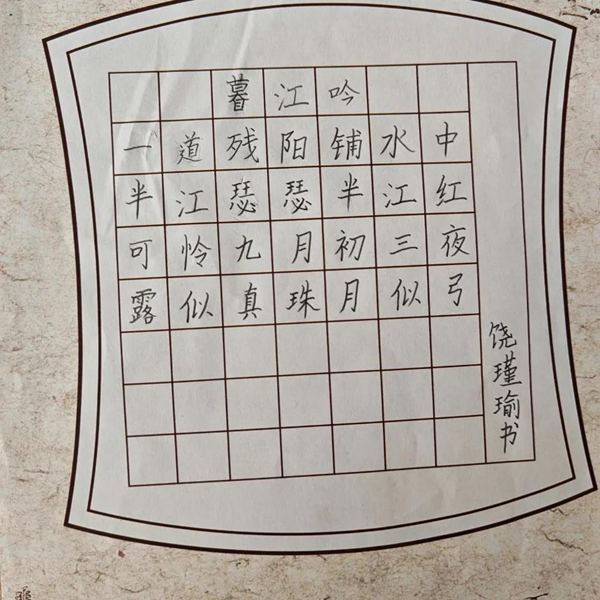 暮江吟
一道残阳铺水中
半江瑟瑟半江红
可怜九月初三夜
露似真珠月似弓
饶瑾瑜书